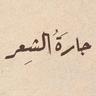 جارَةُ الشِعر